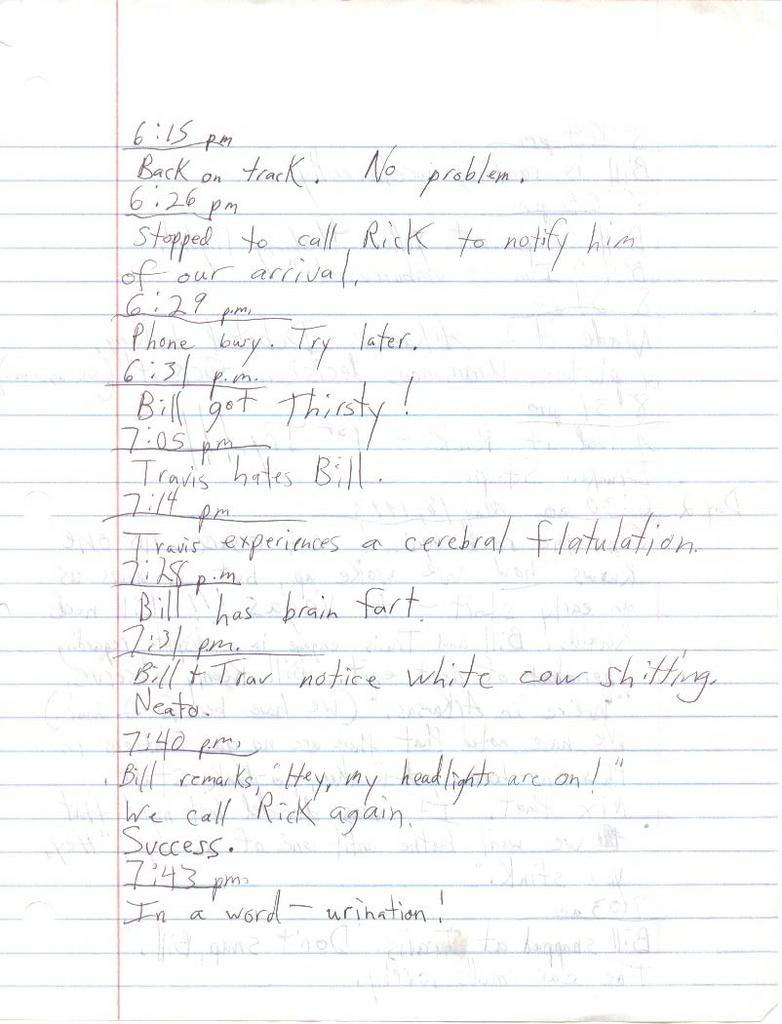 6:15 pm
Back on track. No problem.
6:26 pm
Stopped to call Rick to notify him
of our arrival.
6:29 p.m.
Phone busy. Try later.
6:31 p.m.
Bill got Thirsty!
7:05 pm
Travis hates Bill.
7:14 pm
Travis experiences a cerebral flatulation.
7:28 p.m.
Bill has brain fart.
7:31 pm.
Bill + Trav notice white cow shitting.
Neato.
7:40 p.m.
Bill remarks, "Hey, my headlights are on!"
We call Rick again.
Success.
7:43 pm.
In a word – urination!